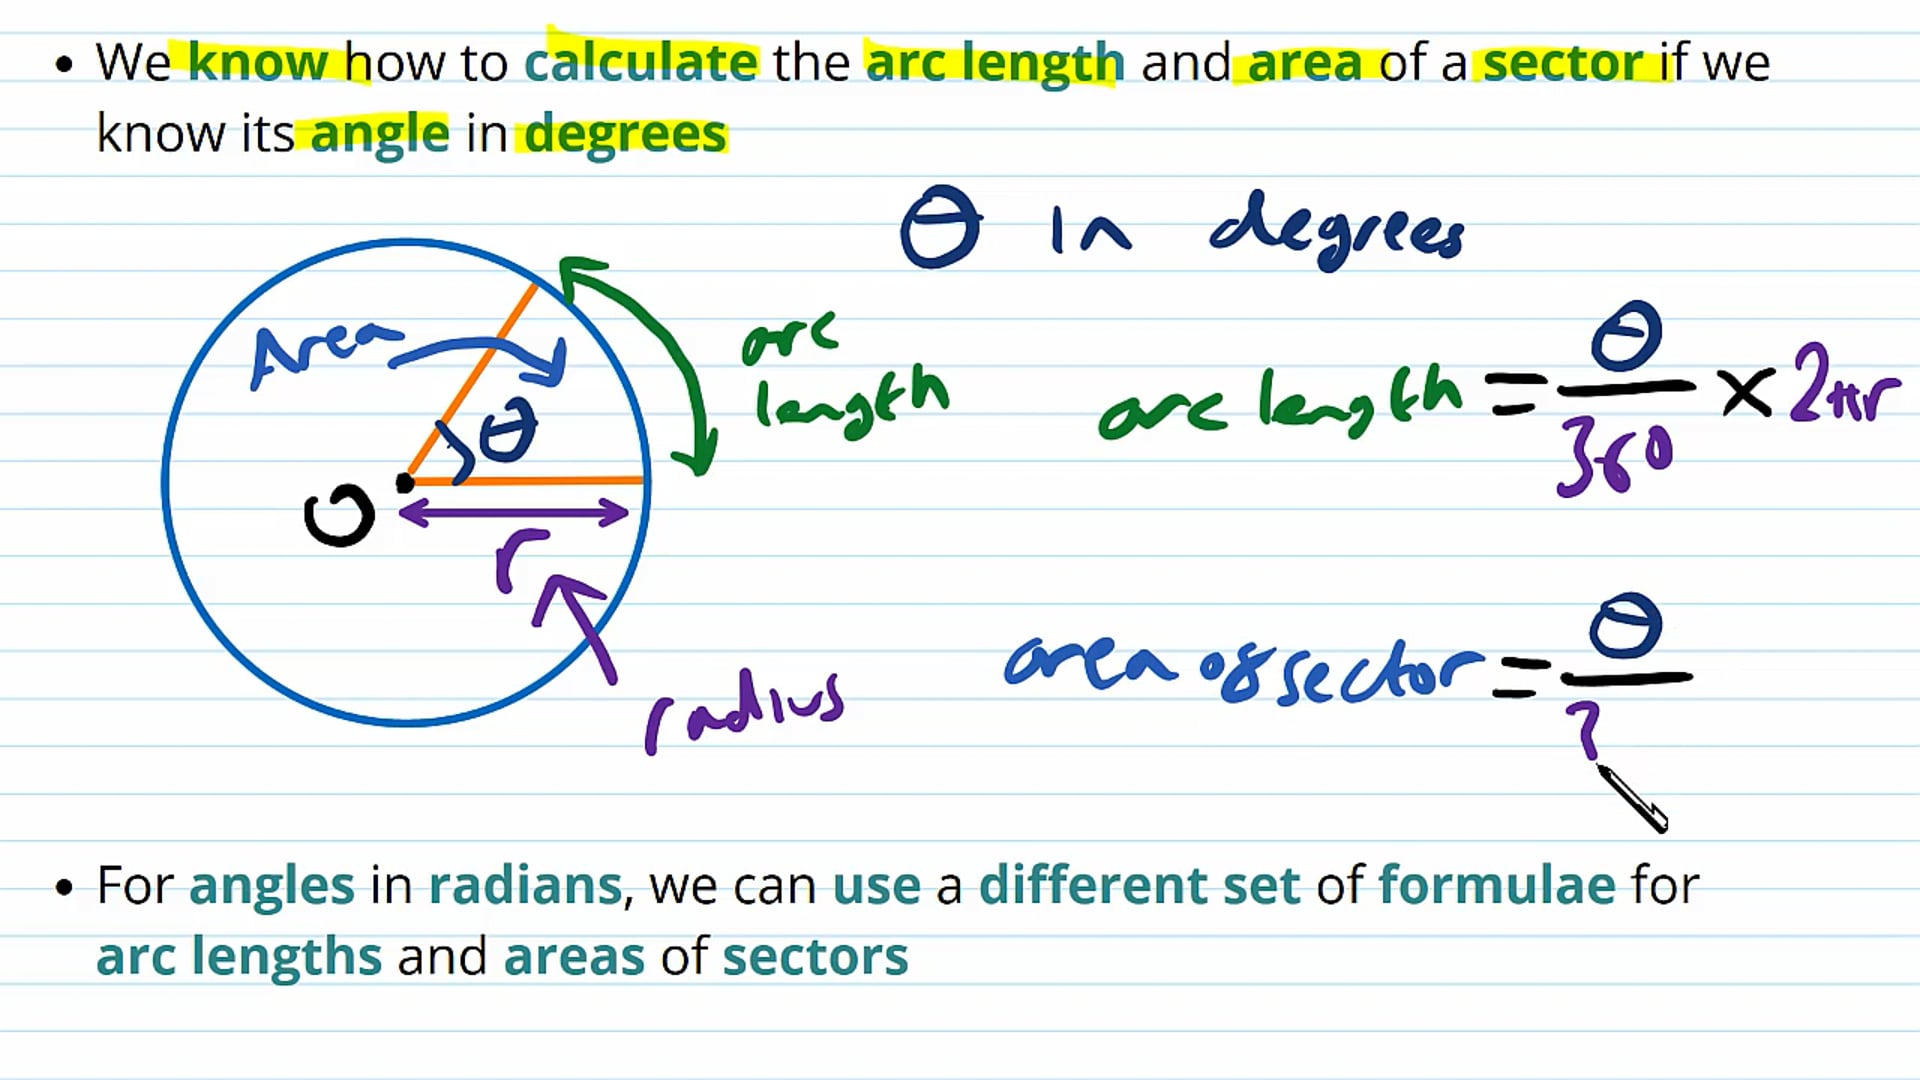 • We know how to calculate the arc length and area of a sector if we
know its angle in degrees
θ in degrees
Area
θ
arc
length
arc length = θ/360 × 2πr
O
r
radius
area of sector = θ/
• For angles in radians, we can use a different set of formulae for
arc lengths and areas of sectors